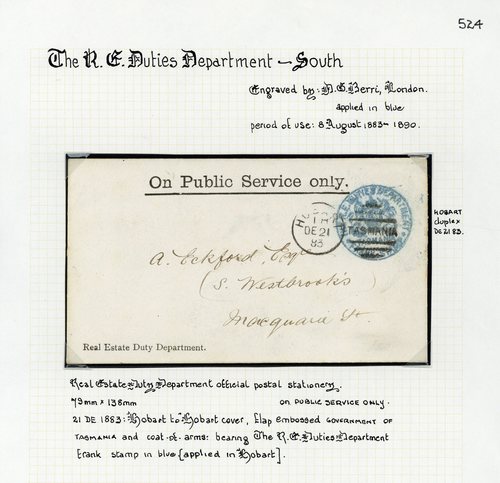 524
The R. E. Duties Department – South
Engraved by: D. G. Berri, London.
applied in blue
period of use: 8 August 1883 – 1890.
On Public Service only.
HO
DE 21
83
R.E. DUTIES DEPARTMENT
TASMANIA
HOBART
duplex
DE 21 83.
A. Eckford, Esqr
(S. Westbrook's)
Macquarie St.
Real Estate Duty Department.
Real Estate Duty Department official postal stationery.
79mm x 138mm
ON PUBLIC SERVICE ONLY.
21 DE 1883: Hobart to Hobart cover, flap embossed GOVERNMENT OF
TASMANIA and coat-of-arms: bearing The R.E. Duties Department
frank stamp in blue [applied in Hobart].